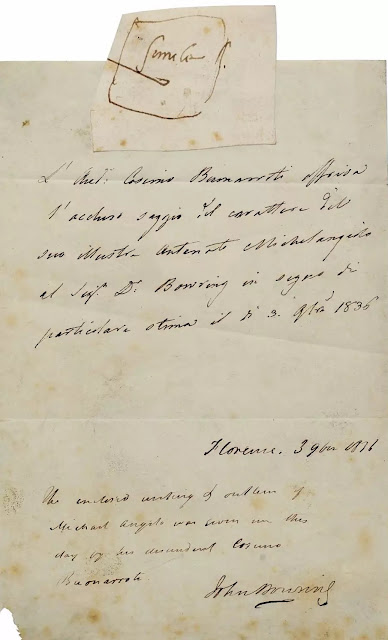 Simile
L' Aud: Cosimo Buonarroti offriva
l' acchiuso saggio del carattere del
suo illustre Antenato Michelangelo
al Sig.r Dr. Bowring in segno di
particolare stima il dì 3. 9bre 1836
Florence. 3 9ber 1836
The enclosed writing & outline of
Michael Angelo was given me this
day by his descendent Cosimo
Buonarroti
John Bowring